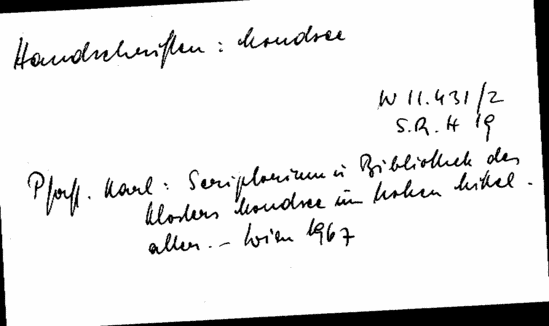 Handschriften: Mondsee
W 11.431/2
S.R. H 19
Pfaff. Karl: Scriptorium u Bibliothek des
Klosters Mondsee im hohen Mittel-
alter. – Wien 1967